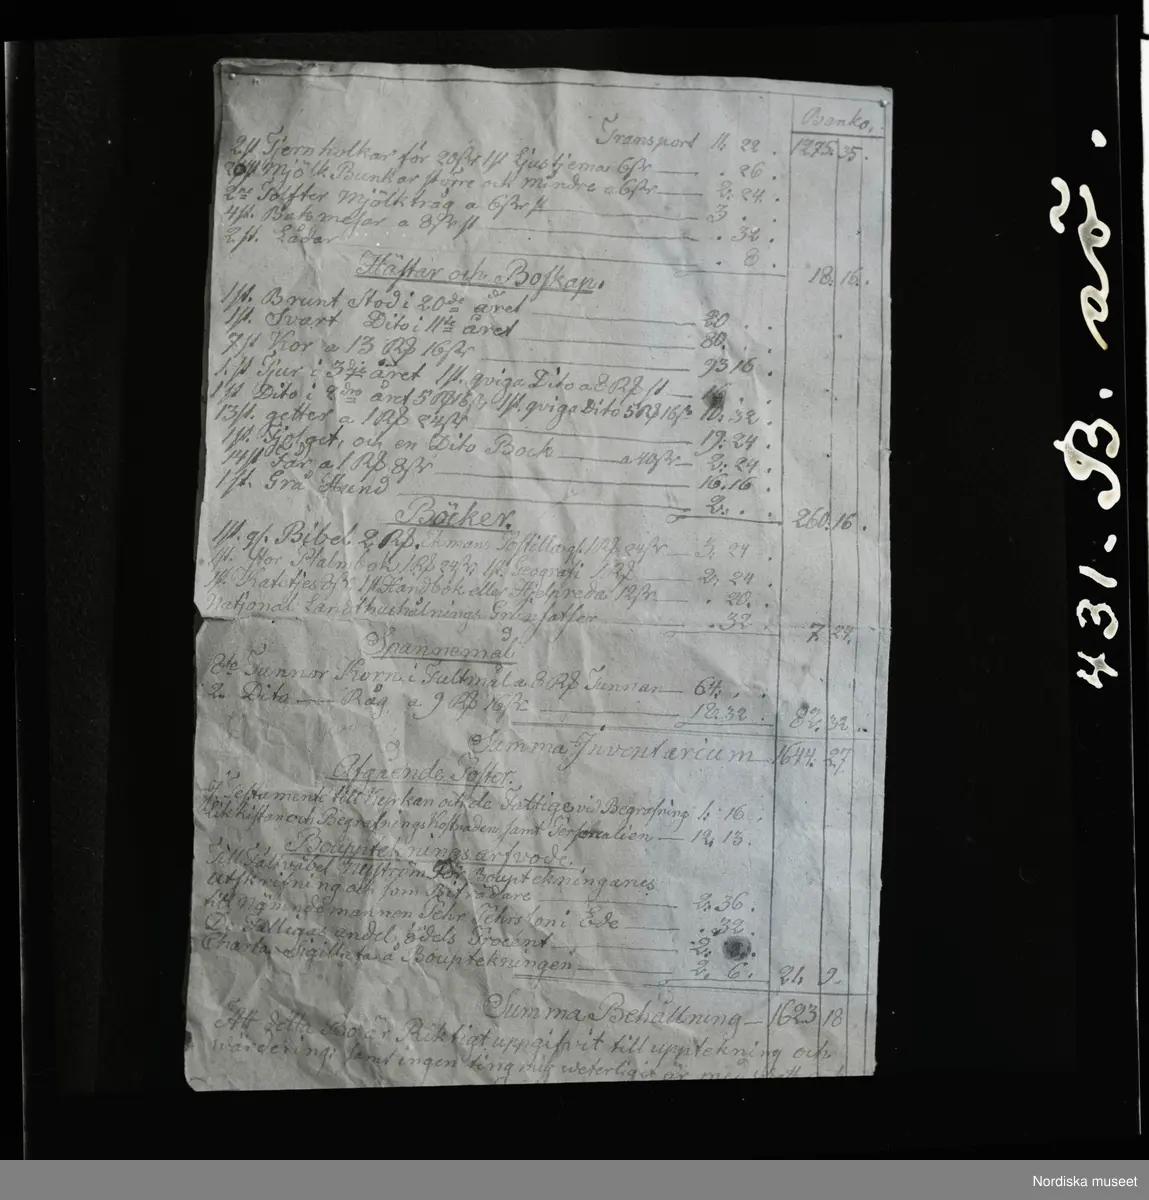 Banko.
Transport 11. 22. 1275.35.
2 st Tjernholkar för 20 ſk 1 st Ljustjerna 6 ſk — . 26.
Mjölk Bunkar större och mindre a 6 ſk — 2. 24.
2ne Tolfter Mjölktråg a 6 ſk st — 3 . .
4 st. Baksmesar a 8 ſk st — . 32.
2 st. Lådar — . 8. 18. 16.
Hästar och Boskap.
1 st. Brunt Stod i 20de året — 20 . .
1 st. Svart Dito i 11te året — 80. .
7 st Kor a 13 Rd 16 ſk — 93 16.
1 st Tjur i 3dje året 1 st. qviga Dito a 8 Rd st — 16
1 st Dito i 2dro året 5 Rd 16 ſk 1 st. qviga Dito 5 Rd 16 ſk 10. 32.
13 st. getter a 1 Rd 24 ſk — 19. 24
1 st. get, och en Dito Bock — a 40 ſk — 2. 24.
14 st Får a 1 Rd 8 ſk — 16. 16.
1 st. Grå Hund — 2. . . 260. 16.
Böcker.
1 st. gl. Bibel 2 Rd. Postilla gl. 1 Rd 24 ſk — 3. 24.
1 st. Stor Psalmbok 1 Rd 24 ſk, 1 st. Geografi 1 Rd — 2. 24
1 st. Katetjes 8 ſk 1 st Handbok eller Hjelpreda 12 ſk — . 20.
National Landthushålnings Grunsatser — . 32. 7. 24.
Spannemål
8ta Tunnor Korn i Fultmål a 8 Rd Tunnan — 64. . .
2. Dito — Råg a 9 Rd 16 ſk — 18. 32. 82. 32.
Summa Inventarium — 1644. 27
Afgående Poster.
Testamente till Kyrkan och de Fattige vid Begrafning 1. 16.
Likkistan och Begrafningskostnaden, samt Personalien — 12. 13.
Bouptekningsarfvode.
Till för Bouptekningarnes
utskrifning och som Biträdare — 2. 36.
till Nämndemannen Pehr Pehrsson i Ede — . 32.
De Fattigas andel, Procent — 2.
Charta Sigillata å Bouptekningen — 2. 6. 21. 9.
Summa Behållning — 1623 18
Att detta Bo är Riktigt uppgifvit till upptekning och
värdering; samt ingen ting mig veterligt är med
431. B. aö.
Nordiska museet